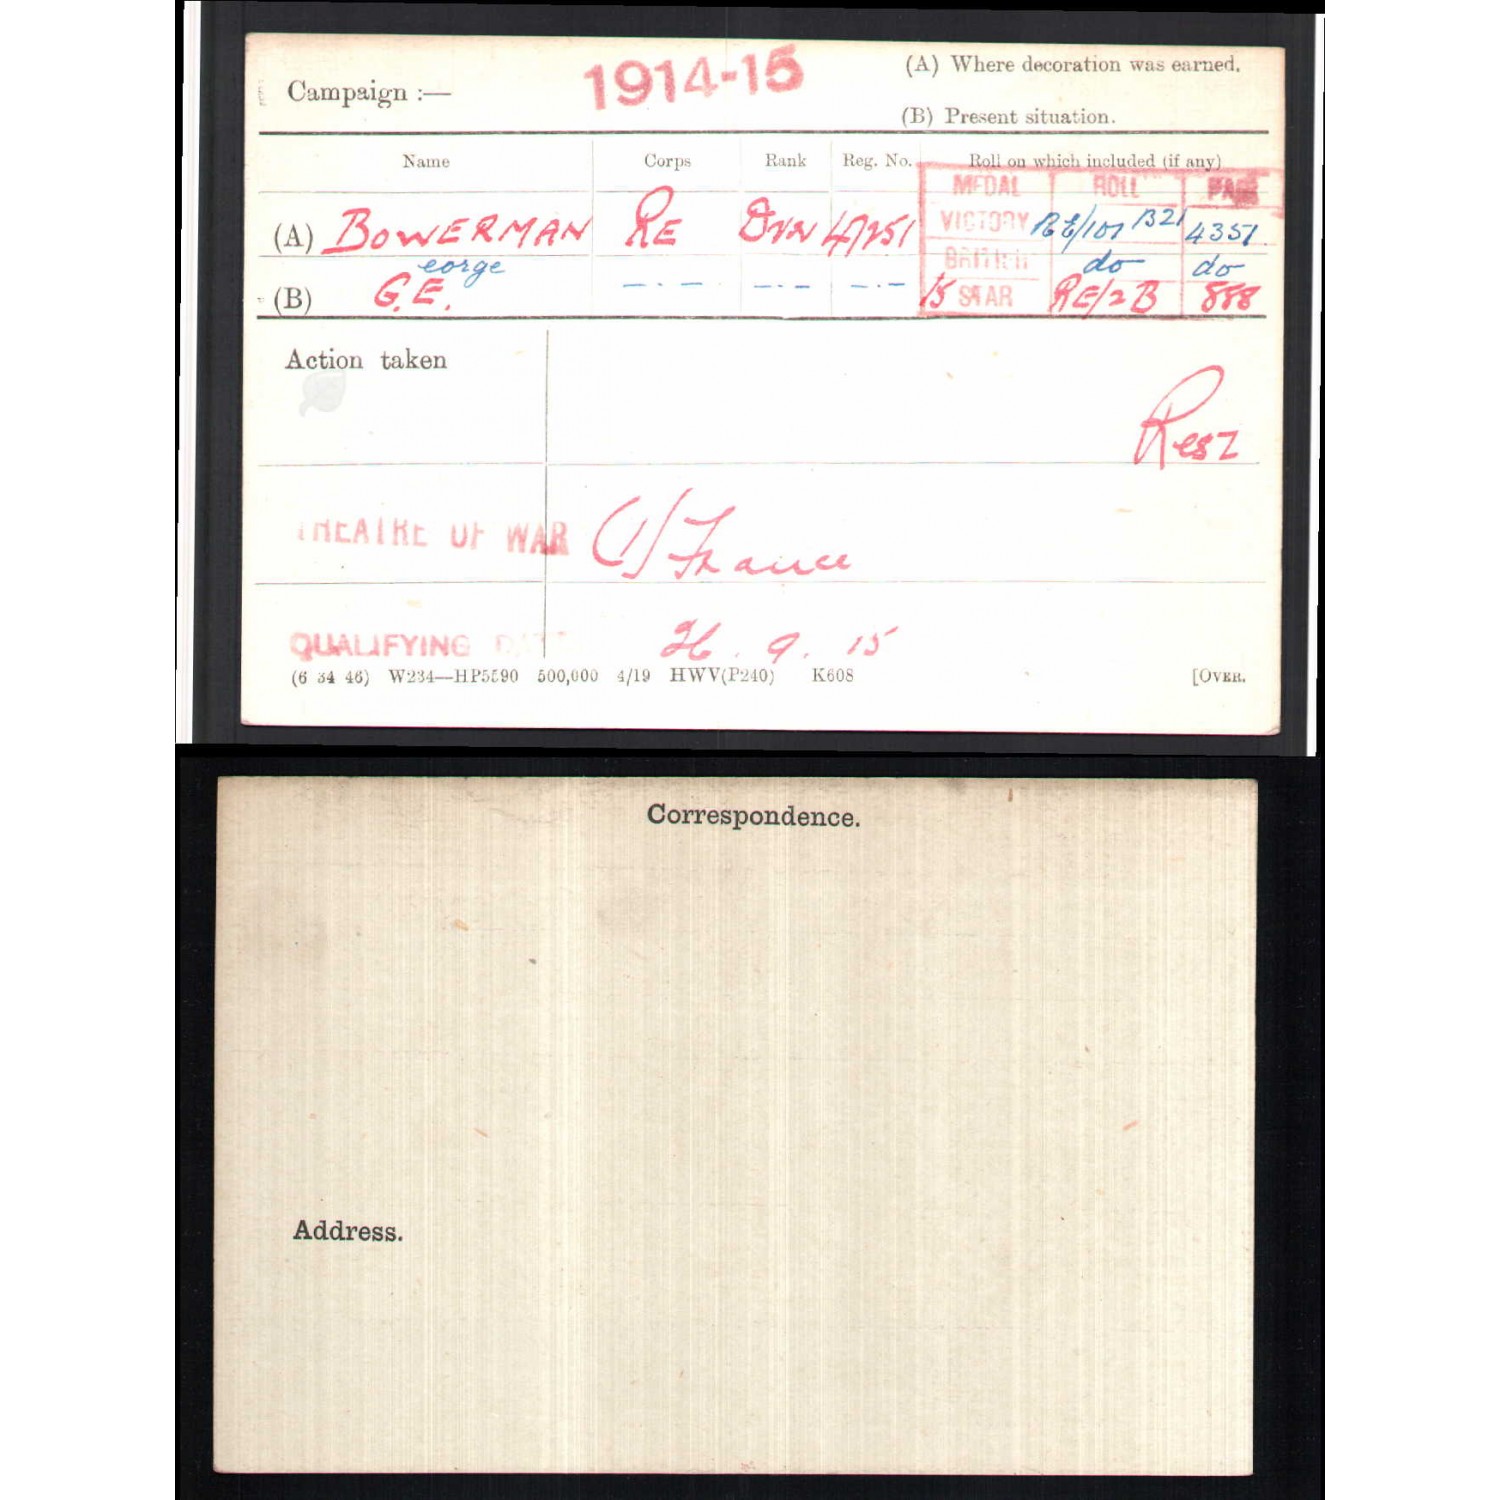 Campaign :— 1914-15 (A) Where decoration was earned.
(B) Present situation.
Name Corps Rank Reg. No. Roll on which included (if any)
MEDAL ROLL PAGE
(A) BOWERMAN RE Dvr VICTORY RE/101 B21 4351
eorge BRITISH do do
(B) G.E. —·— —·— —·— 15 STAR RE/2B 888
Action taken
Resz
THEATRE OF WAR (1) France
QUALIFYING DATE 26.9.15
(6 34 46) W234—HP5590 500,000 4/19 HWV(P240) K608 [OVER.
Correspondence.
Address.